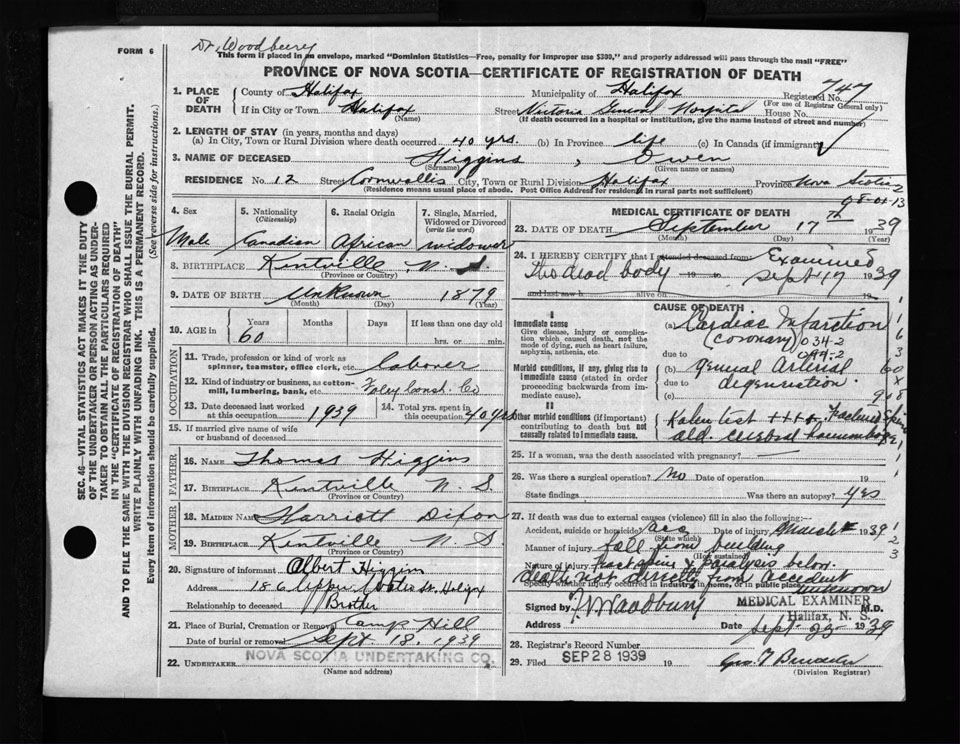 Dr. Woodbury
FORM 6
This form if placed in an envelope, marked "Dominion Statistics—Free, penalty for improper use $300," and properly addressed will pass through the mail "FREE"
PROVINCE OF NOVA SCOTIA—CERTIFICATE OF REGISTRATION OF DEATH
SEC. 46—VITAL STATISTICS ACT MAKES IT THE DUTY
OF THE UNDERTAKER OR PERSON ACTING AS UNDER-
TAKER TO OBTAIN ALL THE PARTICULARS REQUIRED
IN THE "CERTIFICATE OF REGISTRATION OF DEATH"
AND TO FILE THE SAME WITH THE DIVISION REGISTRAR WHO SHALL ISSUE THE BURIAL PERMIT.
WRITE PLAINLY WITH UNFADING INK. THIS IS A PERMANENT RECORD.
Every item of information should be carefully supplied. (See reverse side for instructions.)
1. PLACE OF DEATH County of Halifax Municipality of Halifax Registered No. 747
(For use of Registrar General only)
If in City or Town Halifax Street Victoria General Hospital House No.
(Name) (If death occurred in a hospital or institution, give the name instead of street and number)
2. LENGTH OF STAY (in years, months and days)
(a) In City, Town or Rural Division where death occurred 40 yrs. (b) In Province life (c) In Canada (if immigrant)
3. NAME OF DECEASED Higgins, Owen
(Surname) (Given name or names)
RESIDENCE No. 12 Street Cornwallis City, Town or Rural Division Halifax Province Nova Scotia
(Residence means usual place of abode. Post Office Address for residence in rural parts not sufficient)
4. Sex Male
5. Nationality (Citizenship) Canadian
6. Racial Origin African
7. Single, Married, Widowed or Divorced (write the word) widower
8. BIRTHPLACE Kintville N. S
(Province or Country)
9. DATE OF BIRTH Unknown 1879
(Month) (Day) (Year)
10. AGE in Years 60 Months Days If less than one day old
hrs. or min.
OCCUPATION
11. Trade, profession or kind of work as spinner, teamster, office clerk, etc. laborer
12. Kind of industry or business, as cotton-mill, lumbering, bank, etc. Foley Const. Co
13. Date deceased last worked at this occupation 1939 14. Total yrs. spent in this occupation 40 yrs
15. If married give name of wife or husband of deceased
FATHER
16. NAME Thomas Higgins
17. BIRTHPLACE Kintville N. S.
(Province or Country)
MOTHER
18. MAIDEN NAME Harriett Dixon
19. BIRTHPLACE Kintville N. S
(Province or Country)
20. Signature of informant Albert Higgins
Address 186 upper Water St. Halifax
Relationship to deceased Brother
21. Place of Burial, Cremation or Removal Camp Hill
Date of burial or removal Sept. 18. 1939
22. UNDERTAKER NOVA SCOTIA UNDERTAKING CO.
(Name and address)
MEDICAL CERTIFICATE OF DEATH
23. DATE OF DEATH September 17th 1939
(Month) (Day) (Year)
24. I HEREBY CERTIFY that I attended deceased from: Examined
this dead body 19 to Sept 17 1939
and last saw h alive on
CAUSE OF DEATH
I
Immediate cause
Give disease, injury or complication which caused death, not the mode of dying, such as heart failure, asphyxia, asthenia, etc.
(a) Cardiac Infarction
(coronary) 034-2
due to 094-2
Morbid conditions, if any, giving rise to immediate cause (stated in order proceeding backwards from immediate cause).
(b) General Arterial
due to degeneration.
(c)
II
Other morbid conditions (if important) contributing to death but not causally related to immediate cause.
Kahn test ++++ Fractured Spine
old. cerebral haemorrhage
25. If a woman, was the death associated with pregnancy?
26. Was there a surgical operation? No Date of operation
State findings Was there an autopsy? yes
27. If death was due to external causes (violence) fill in also the following:
Accident, suicide or homicide? acc Date of injury March 1939
(State which)
Manner of injury fall from building
(How sustained)
Nature of injury fract spine & paralysis below.
death not directly from accident
Specify whether injury occurred in industry, in home, or in public place unknown
Signed by Woodbury MEDICAL EXAMINER M.D.
Halifax, N. S.
Address Date Sept. 25 1939
28. Registrar's Record Number
29. Filed SEP 28 1939 19
(Division Registrar)